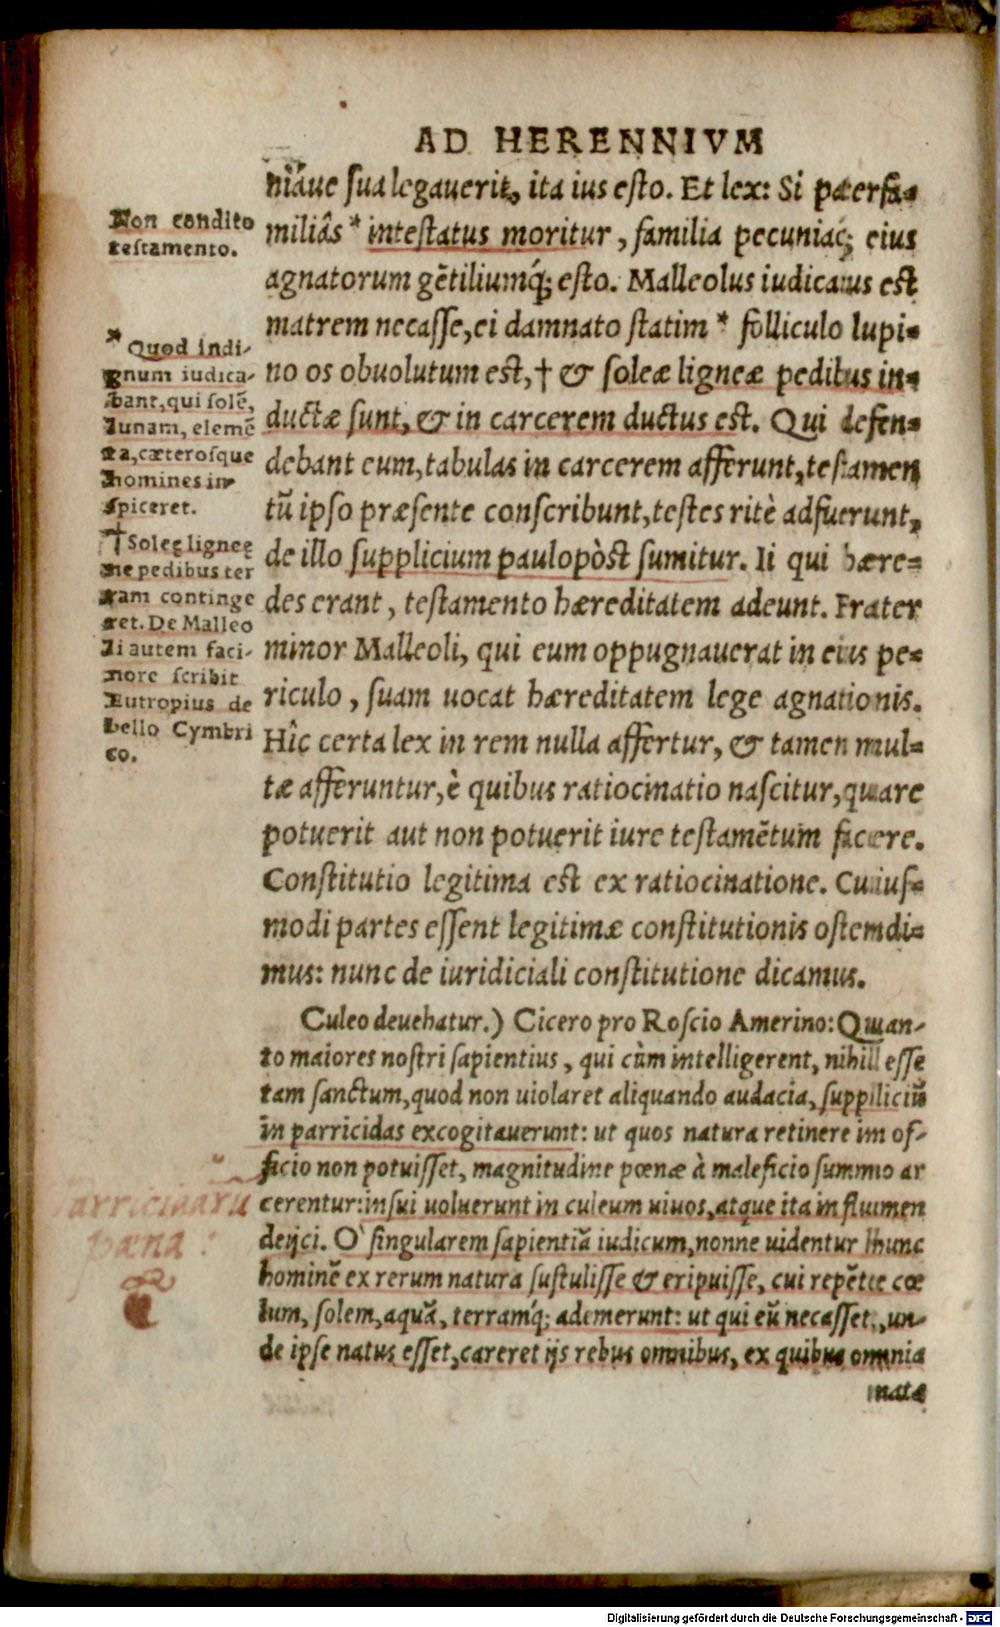 AD HERENNIVM
niâue sua legauerit, ita ius esto. Et lex: Si paterfa-
miliâs * intestatus moritur, familia pecuniaq́; eius
agnatorum gẽtiliumq́; esto. Malleolus iudicatus est
matrem necasse, ei damnato statim * folliculo lupi-
no os obuolutum est, † & soleæ ligneæ pedibus in-
ductæ sunt, & in carcerem ductus est. Qui defen-
debant eum, tabulas in carcerem afferunt, testamen
tũ ipso præsente conscribunt, testes ritè adfuerunt,
de illo supplicium paulopòst sumitur. Ii qui hære-
des erant, testamento hæreditatem adeunt. Frater
minor Malleoli, qui eum oppugnauerat in eius pe-
riculo, suam uocat hæreditatem lege agnationis.
Hîc certa lex in rem nulla affertur, & tamen mul-
tæ afferuntur, è quibus ratiocinatio nascitur, quare
potuerit aut non potuerit iure testamẽtum facere.
Constitutio legitima est ex ratiocinatione. Cuius-
modi partes essent legitimæ constitutionis ostendi-
mus: nunc de iuridiciali constitutione dicamus.
Culeo deuehatur.) Cicero pro Roscio Amerino: Quan-
to maiores nostri sapientius, qui cùm intelligerent, nihil esse
tam sanctum, quod non uiolaret aliquando audacia, suppliciũ
in parricidas excogitauerunt: ut quos natura retinere in of-
ficio non potuisset, magnitudine pœnæ à maleficio summo ar
cerentur: insui uoluerunt in culeum uiuos, atque ita in flumen
deijci. O singularem sapientiã iudicum, nonne uidentur hunc
hominẽ ex rerum natura sustulisse & eripuisse, cui repẽte cœ
lum, solem, aquã, terramq́; ademerunt: ut qui eũ necasset, un-
de ipse natus esset, careret ijs rebus omnibus, ex quibus omnia
nata
Non condito
testamento.
* Quod indi-
gnum iudica-
bant, qui solẽ,
lunam, elemẽ
ta, cæterosque
homines in-
spiceret.
† Soleę ligneę
ne pedibus ter
ram continge
ret. De Malleo
li autem faci-
nore scribit
Eutropius de
bello Cymbri
co.
Parricidarũ
pæna:
Digitalisierung gefördert durch die Deutsche Forschungsgemeinschaft - DFG